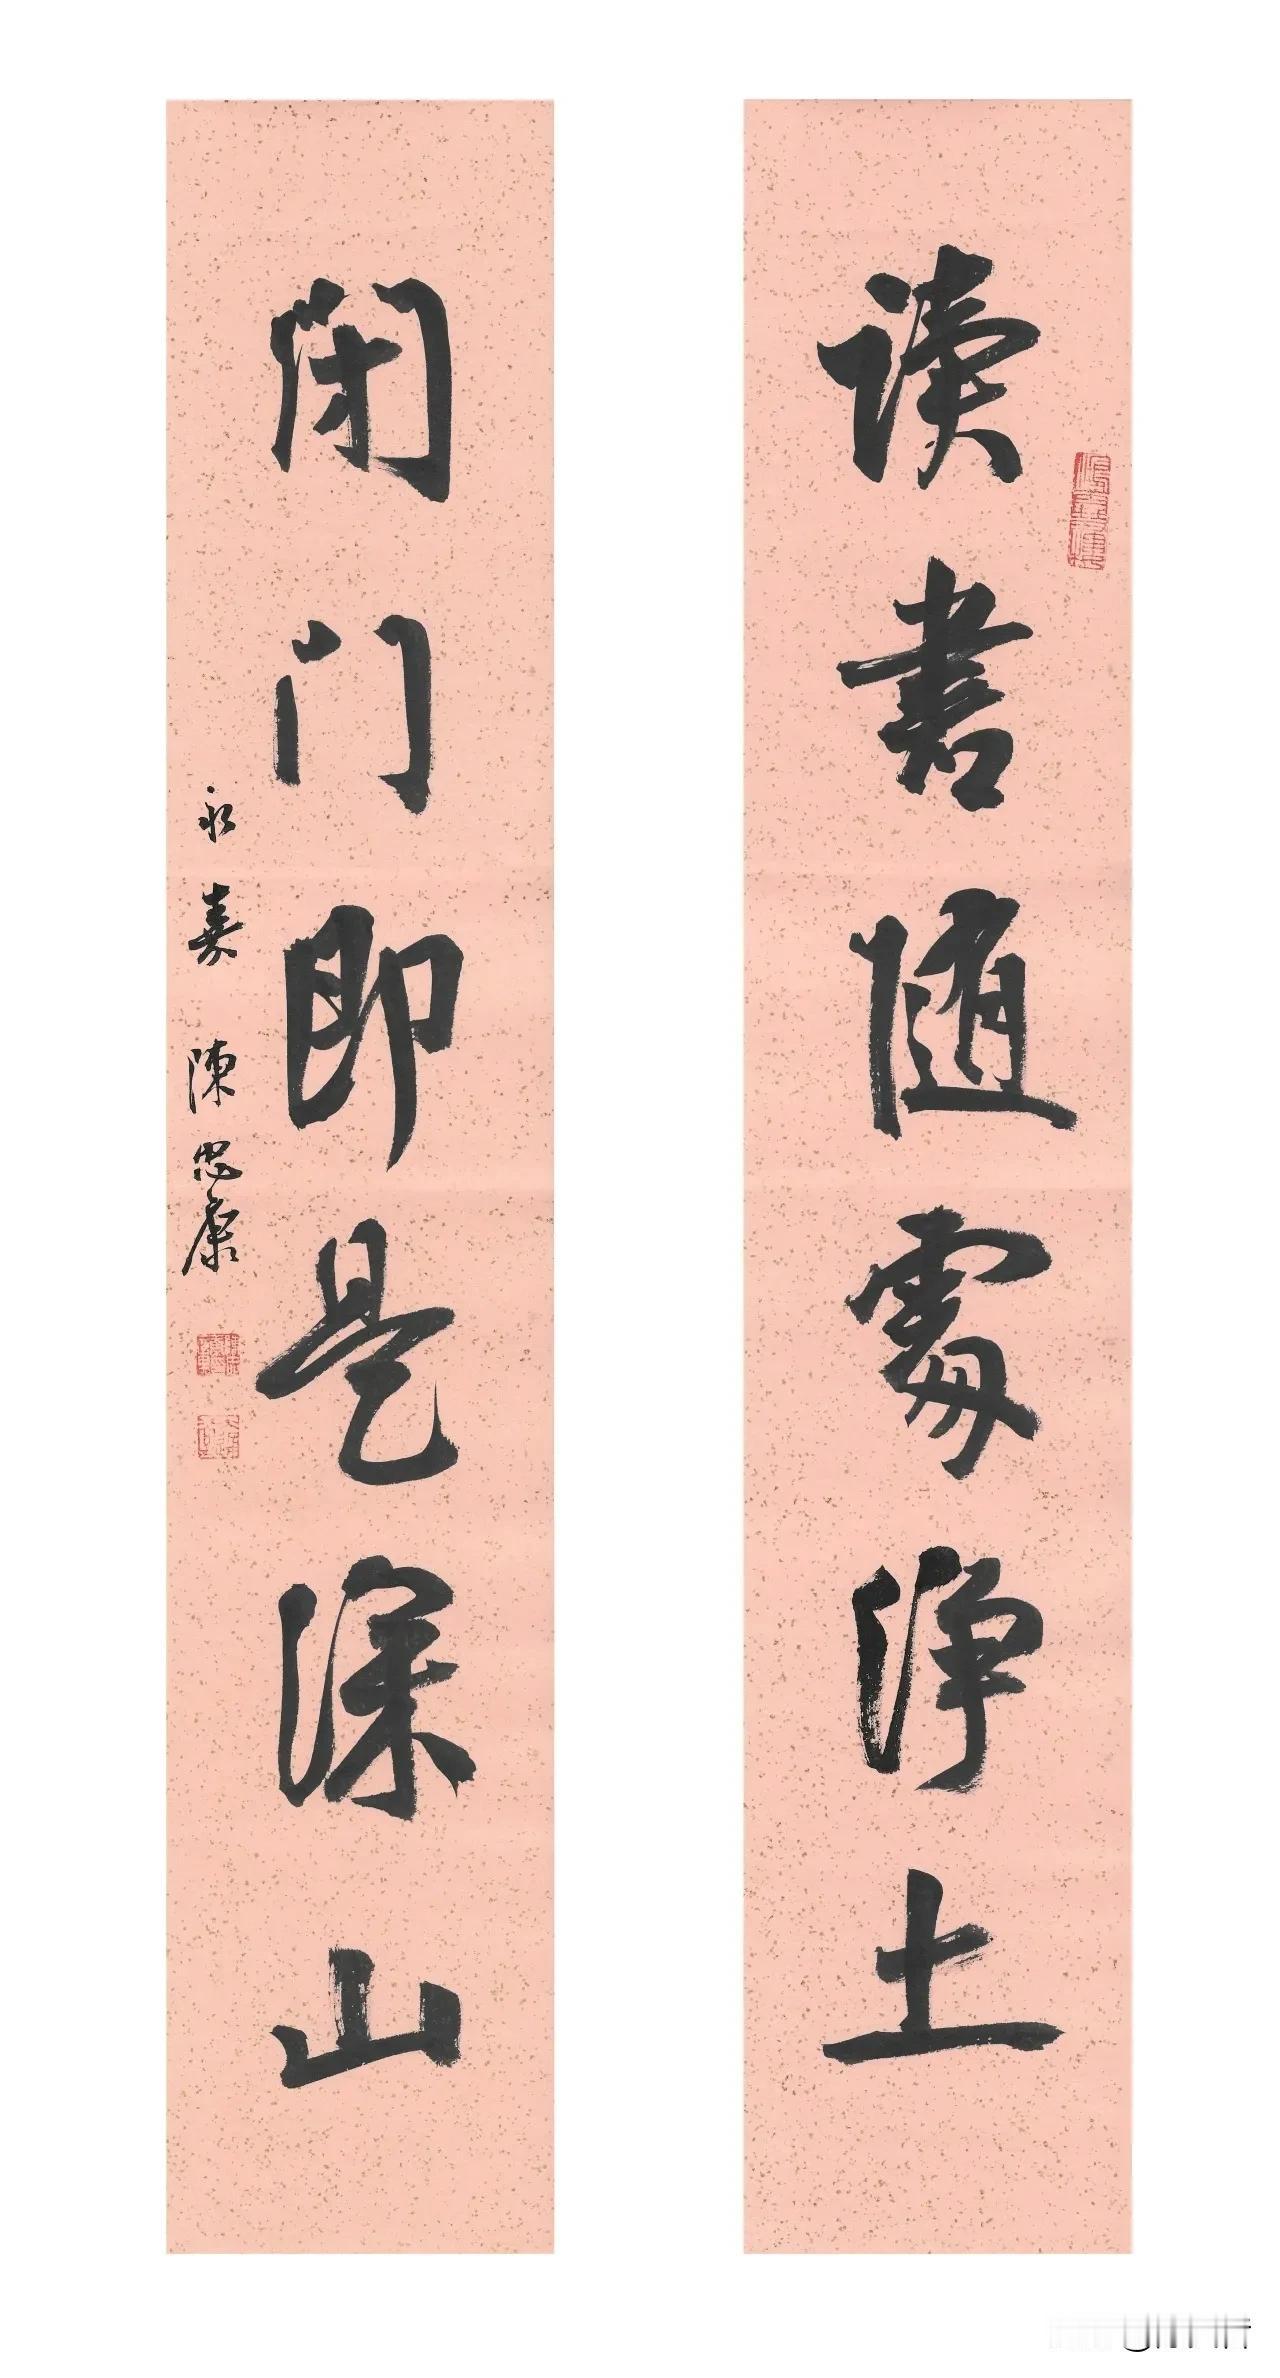 读书随處淨土
闭门即是深山
永嘉陳忠康